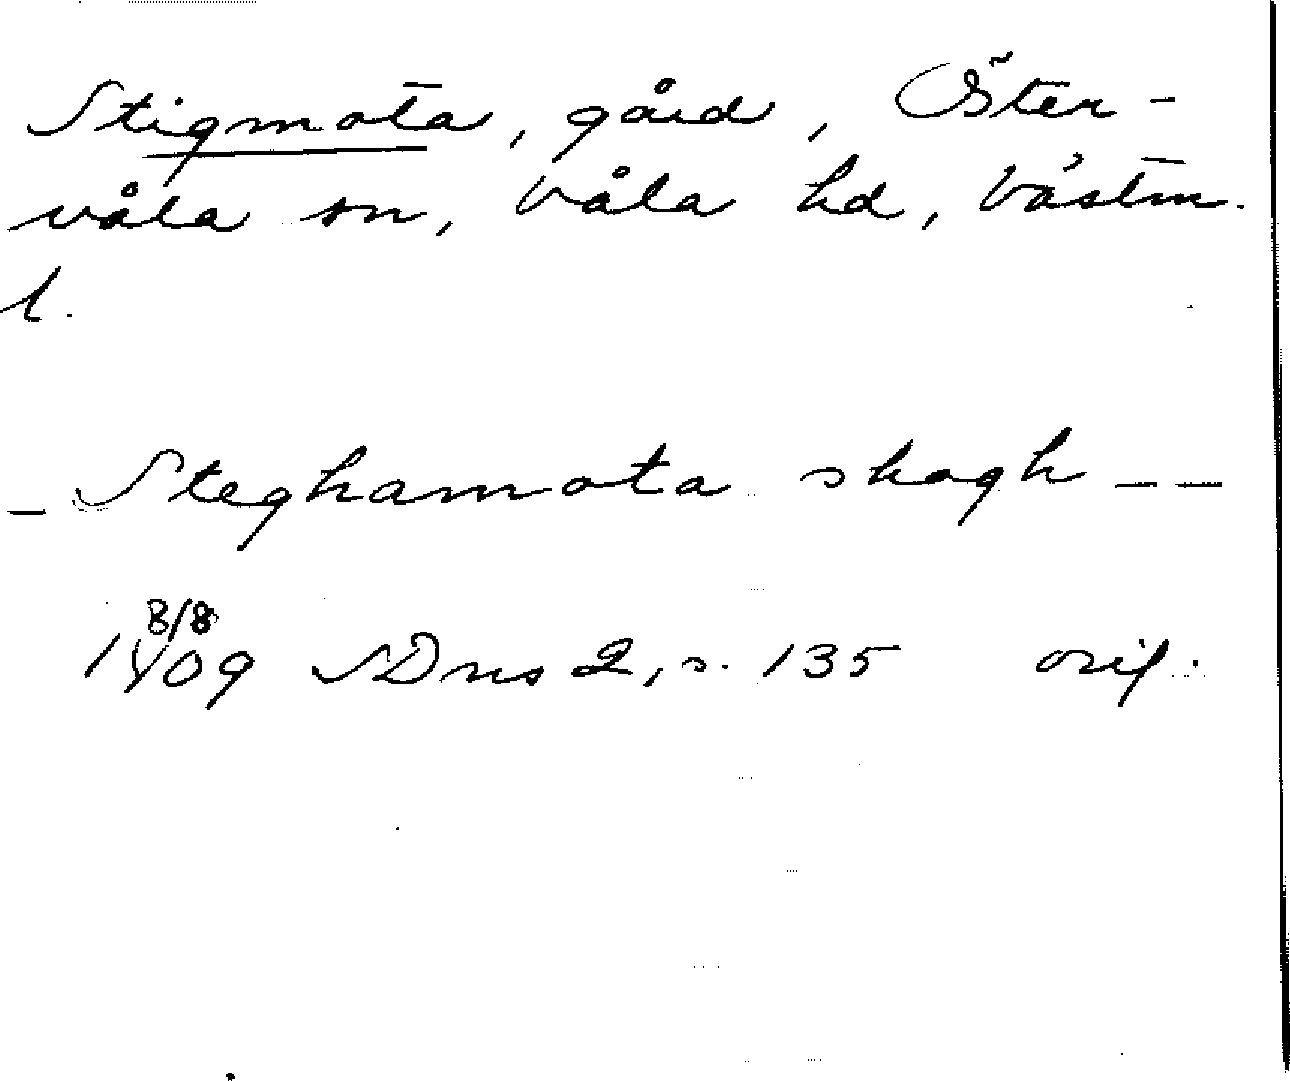 Stigmota, gård, Öster-
våla sn, Våla hd, Västm.
l.
- Steghamota skogh - -
8/8
1409 SDns 2, s. 135 orig.